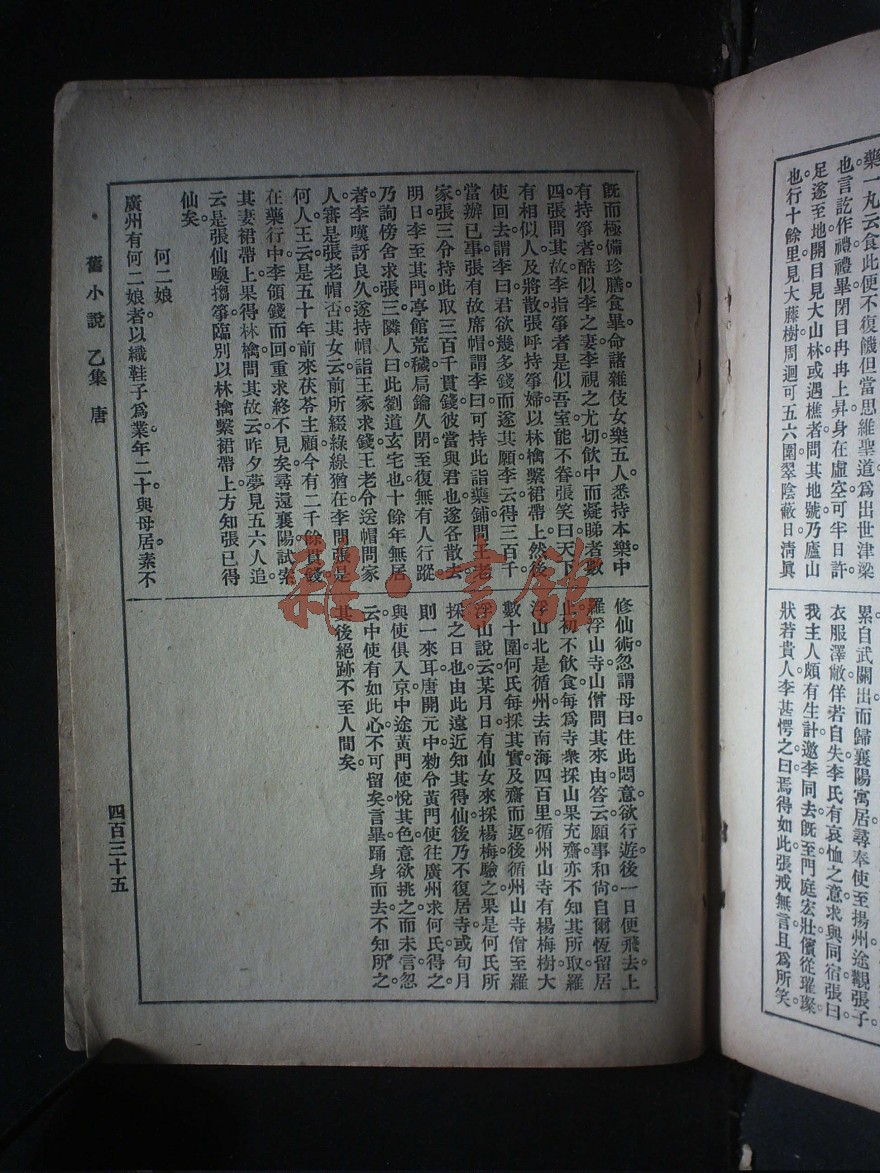 藥一丸云食此便不復饑。但當思維聖道。爲出世津梁
也。言訖作禮。禮畢閉目。冉冉上昇。身在虛空。可半日許。
足遂至地。開目見大山林。或遇樵者。問其地號。乃廬山
也。行十餘里。見大藤樹。周迴可五六圍。翠陰蔽日。清眞
累。自武關出而歸襄陽寓居。尋奉使至揚州。途覯張子。
衣服澤敝。佯若自失。李氏有哀恤之意。求與同宿。張曰。
我主人頗有生計。邀李同去。旣至。門庭宏壯。儐從璀璨。
狀若貴人。李甚愕之曰。焉得如此。張戒無言。且爲所笑。
旣而極備珍膳。食畢。命諸雜伎女樂五人。悉持本樂。中
有持箏者。酷似李之妻。李視之尤切。飲中而凝睇者數
四。張問其故。李指箏者。是似吾室。能不眷。張笑曰。天下
有相似人。及將散。張呼持箏婦。以林檎繫裙帶上。然後
使回去。謂李曰。君欲幾多錢而遂其願。李云。得三百千
當辦已事。張有故席帽。謂李曰。可持此詣藥鋪。問王老
家。張三令持此取三百千貫錢。彼當與君也。遂各散去。
明日。李至其門。亭館荒穢。扃鑰久閉。至復無有人行蹤。
乃詢傍舍求張三。隣人曰。此劉道玄宅也。十餘年無居
者。李嘆訝良久。遂持帽詣王家求錢。王老令送帽問家
人。審是張老帽否。其女云。前所綴綠線猶在。李問張是
何人。王云。是五十年前來茯苓主顧。今有二千餘貫錢
在藥行中。李領錢而回。重求終不見矣。尋還襄陽。試索
其妻裙帶上。果得林檎。問其故。云昨夕夢見五六人追。
云是張仙喚搊箏。臨別以林檎繫裙帶上。方知張已得
仙矣。
何二娘
廣州有何二娘者。以織鞋子爲業。年二十。與母居。素不
修仙術。忽謂母曰。住此悶。意欲行遊。後一日便飛去。上
羅浮山寺。山僧問其來由。答云。願事和尚。自爾恆留居
止。初不飲食。每爲寺衆採山果充齋。亦不知其所取。羅
浮山北是循州。去南海四百里。循州山寺有楊梅樹。大
數十圍。何氏每採其實。及齋而返。後循州山寺僧至羅
浮山。說云。某月日有仙女來採楊梅。驗之。果是何氏所
採之日也。由此遠近知其得仙。後乃不復居寺。或旬月
則一來耳。唐開元中。勅令黃門使往廣州。求何氏得之。
與使俱入京。中途黃門使悅其色。意欲挑之而未言。忽
云。中使有如此心。不可留矣。言畢。踊身而去。不知所之。
其後絕跡不至人間矣。
舊小說 乙集 唐
四百三十五
雜·書館